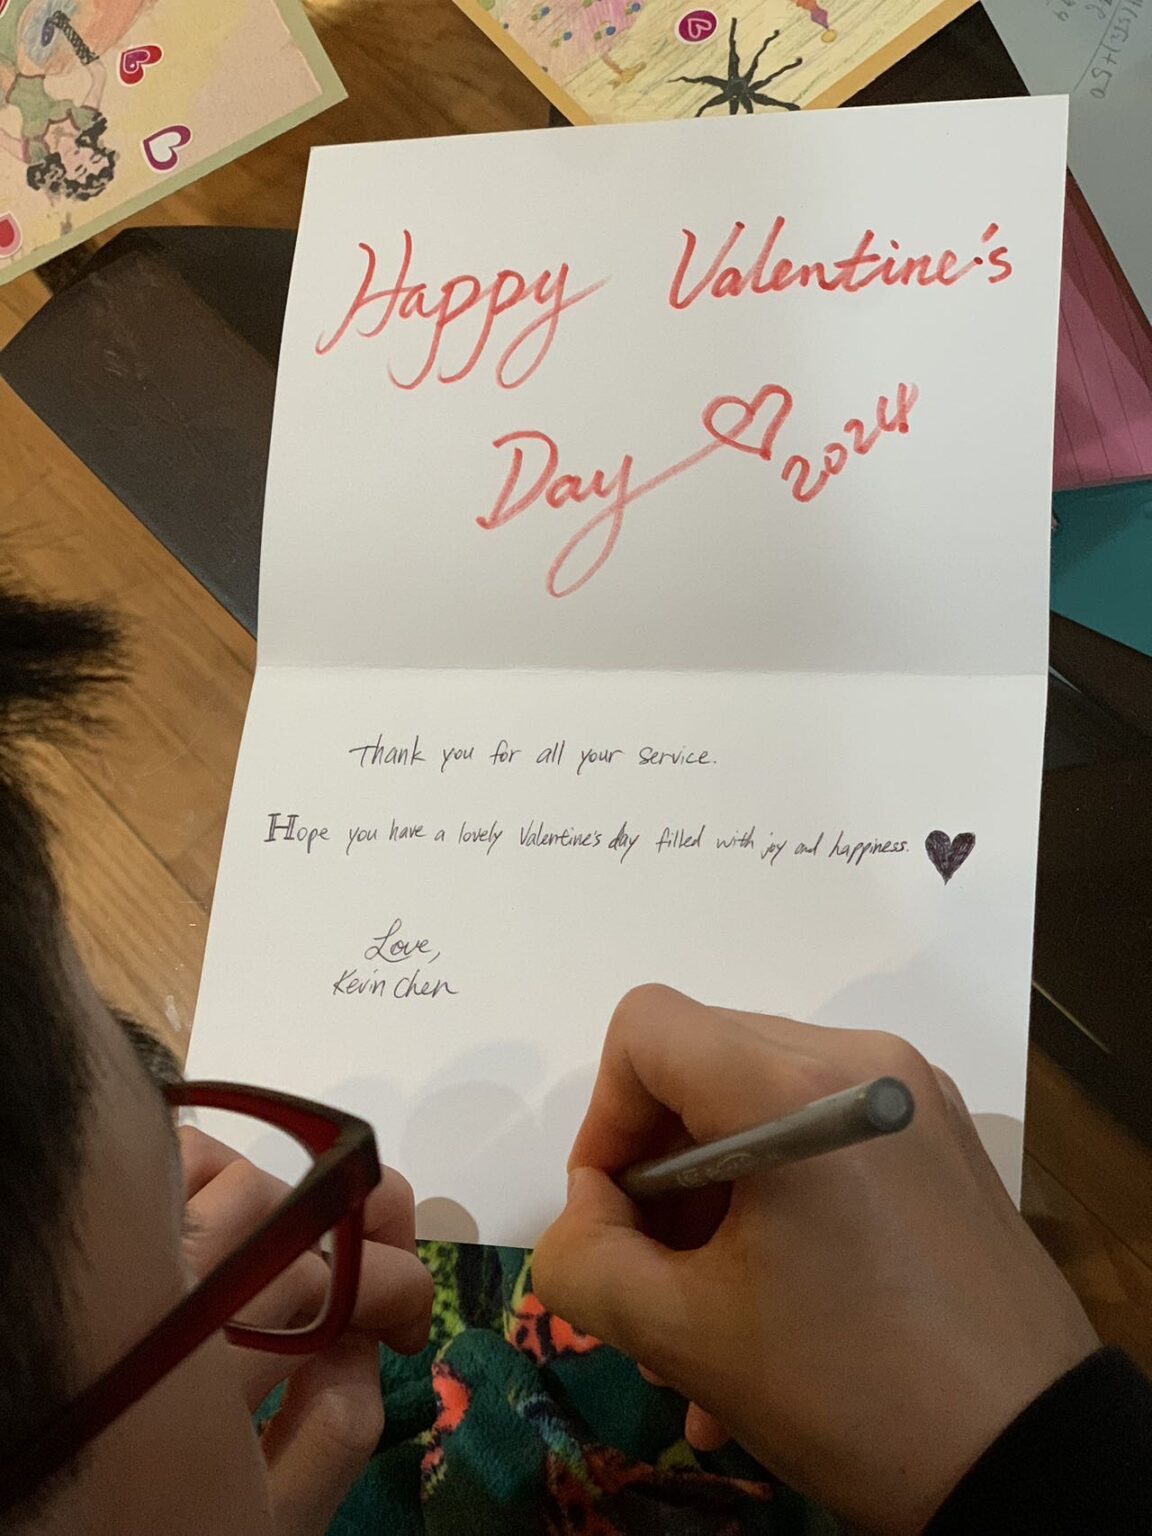 Happy Valentine's
Day 2024
Thank you for all your service.
Hope you have a lovely Valentine's day filled with joy and happiness.
Love,
Kevin Chen